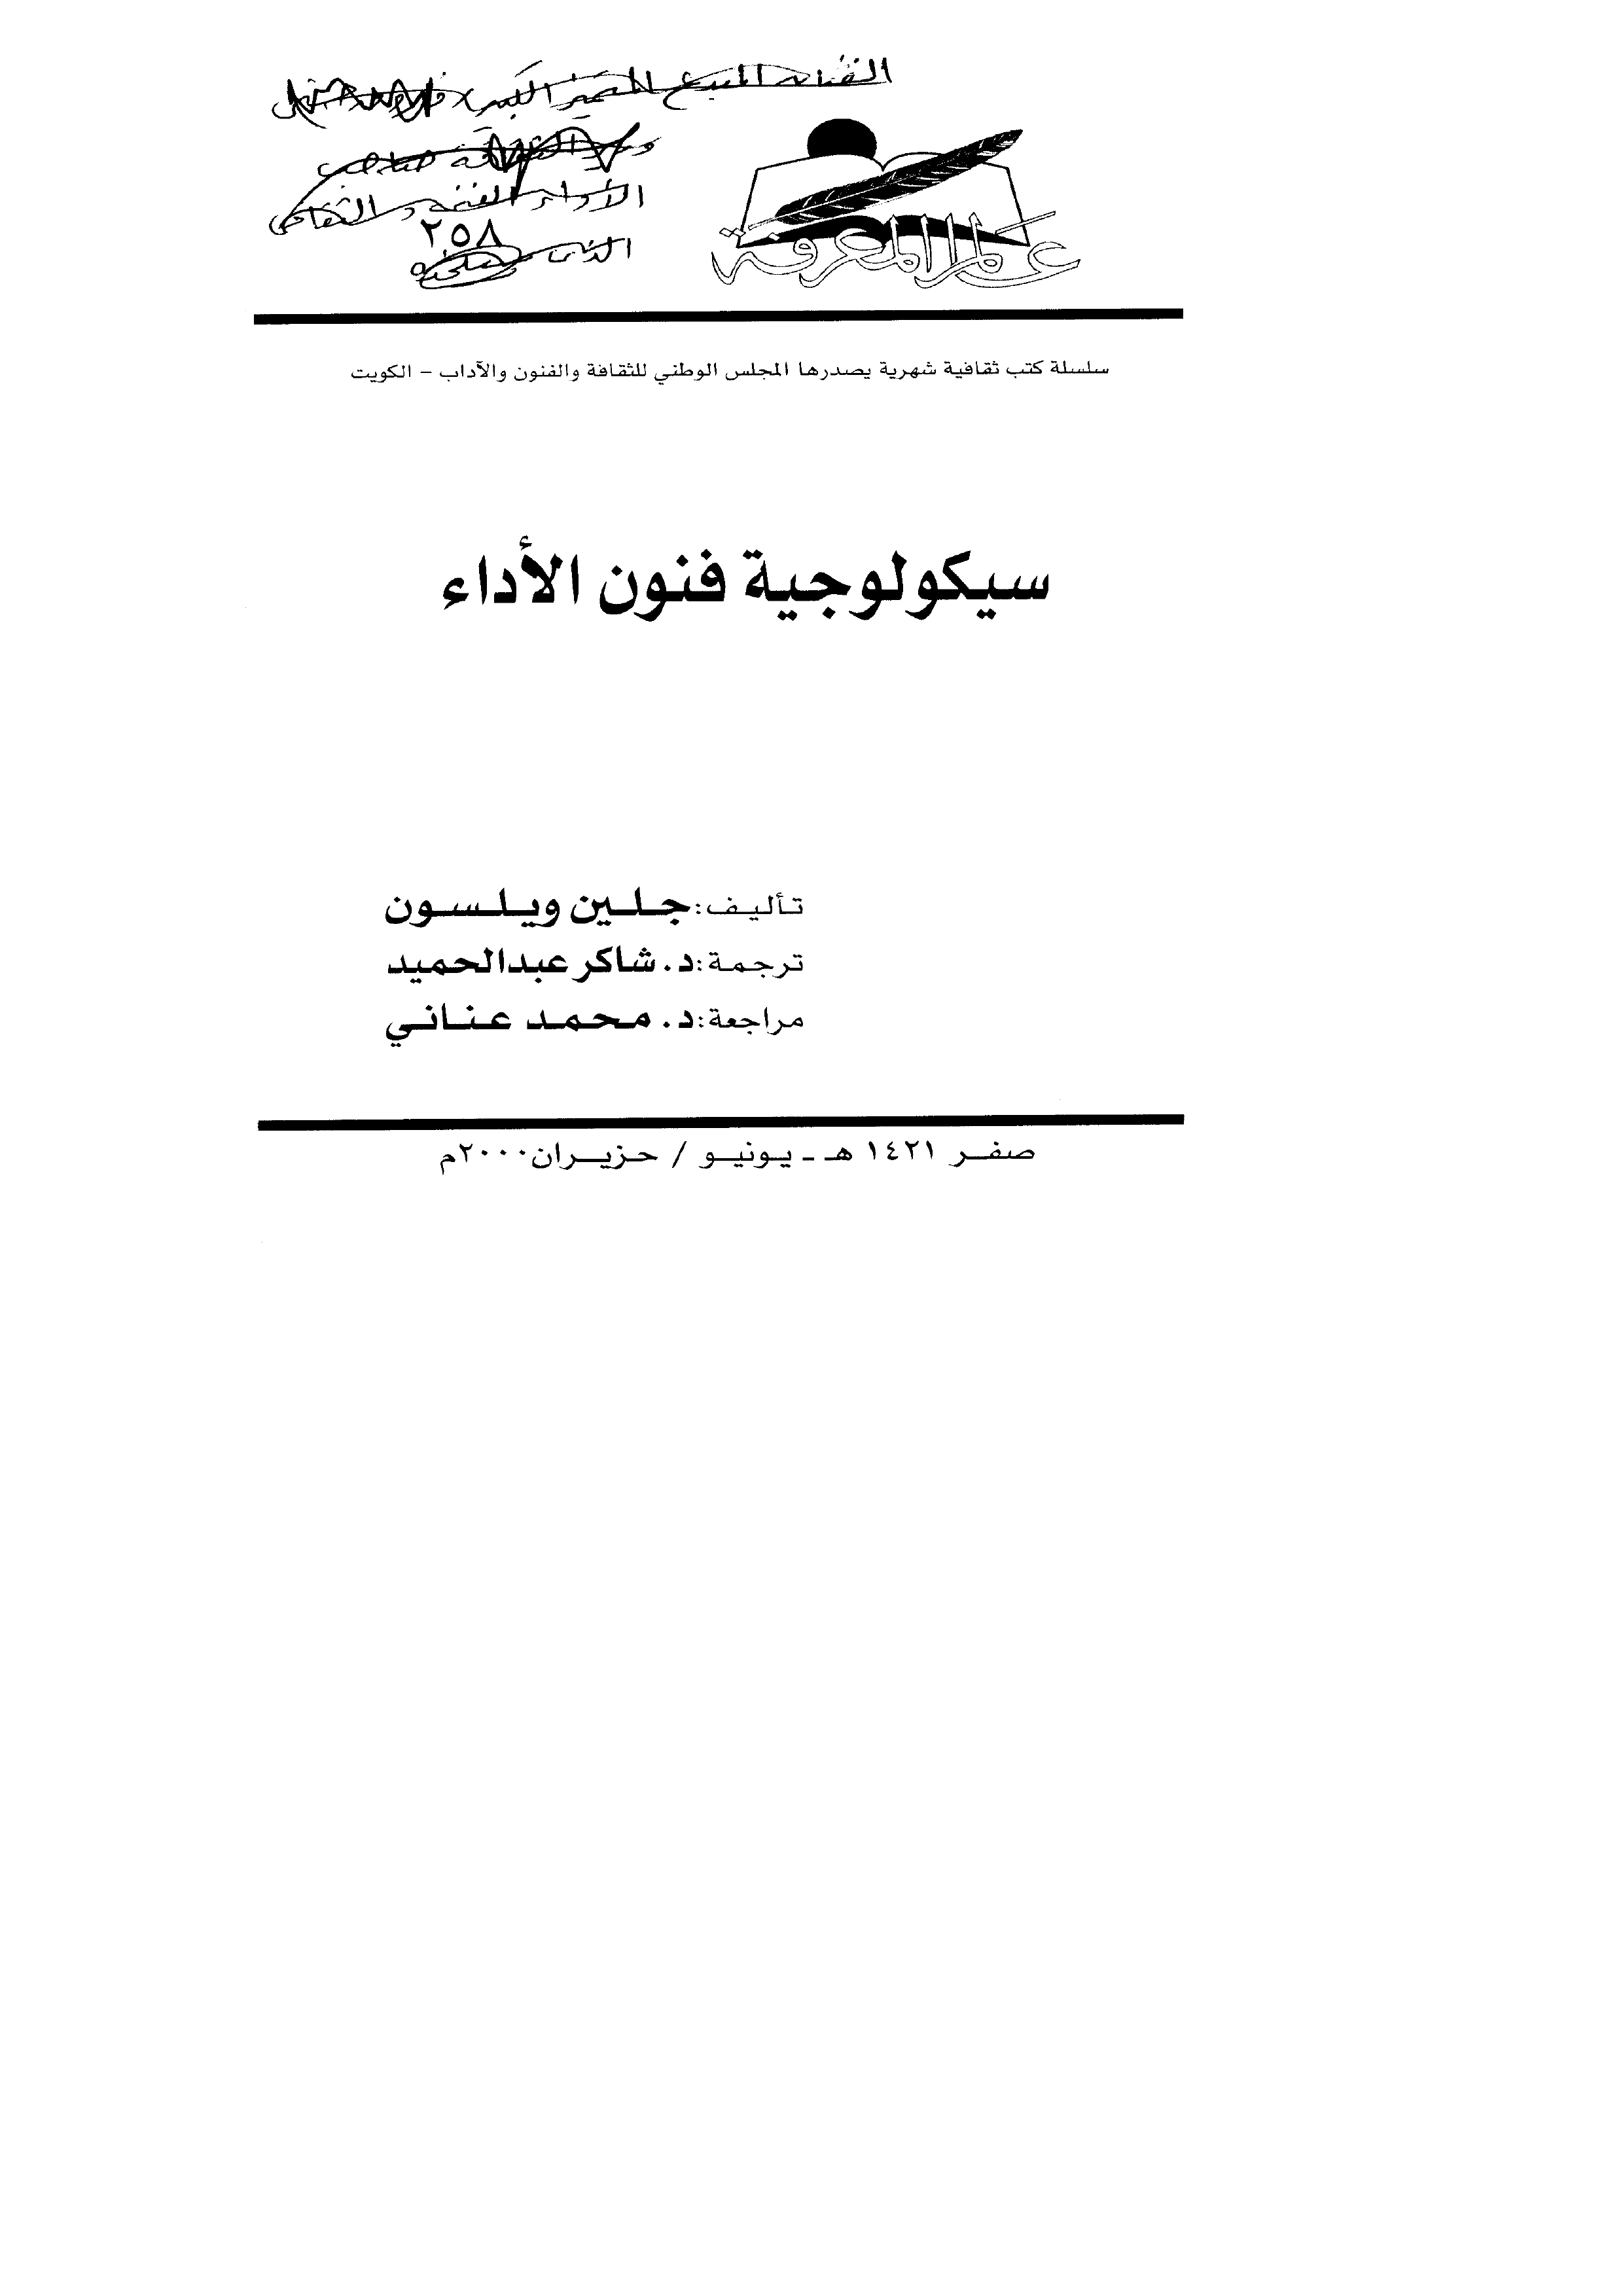 الفنان المبدع
٢٥٨
عالم المعرفة
سلسلة كتب ثقافية شهرية يصدرها المجلس الوطني للثقافة والفنون والآداب – الكويت
سيكولوجية فنون الأداء
تأليف: جلين ويلسون
ترجمة: د. شاكر عبدالحميد
مراجعة: د. محمد عناني
صفر ١٤٢١ هـ - يونيو / حزيران ٢٠٠٠م